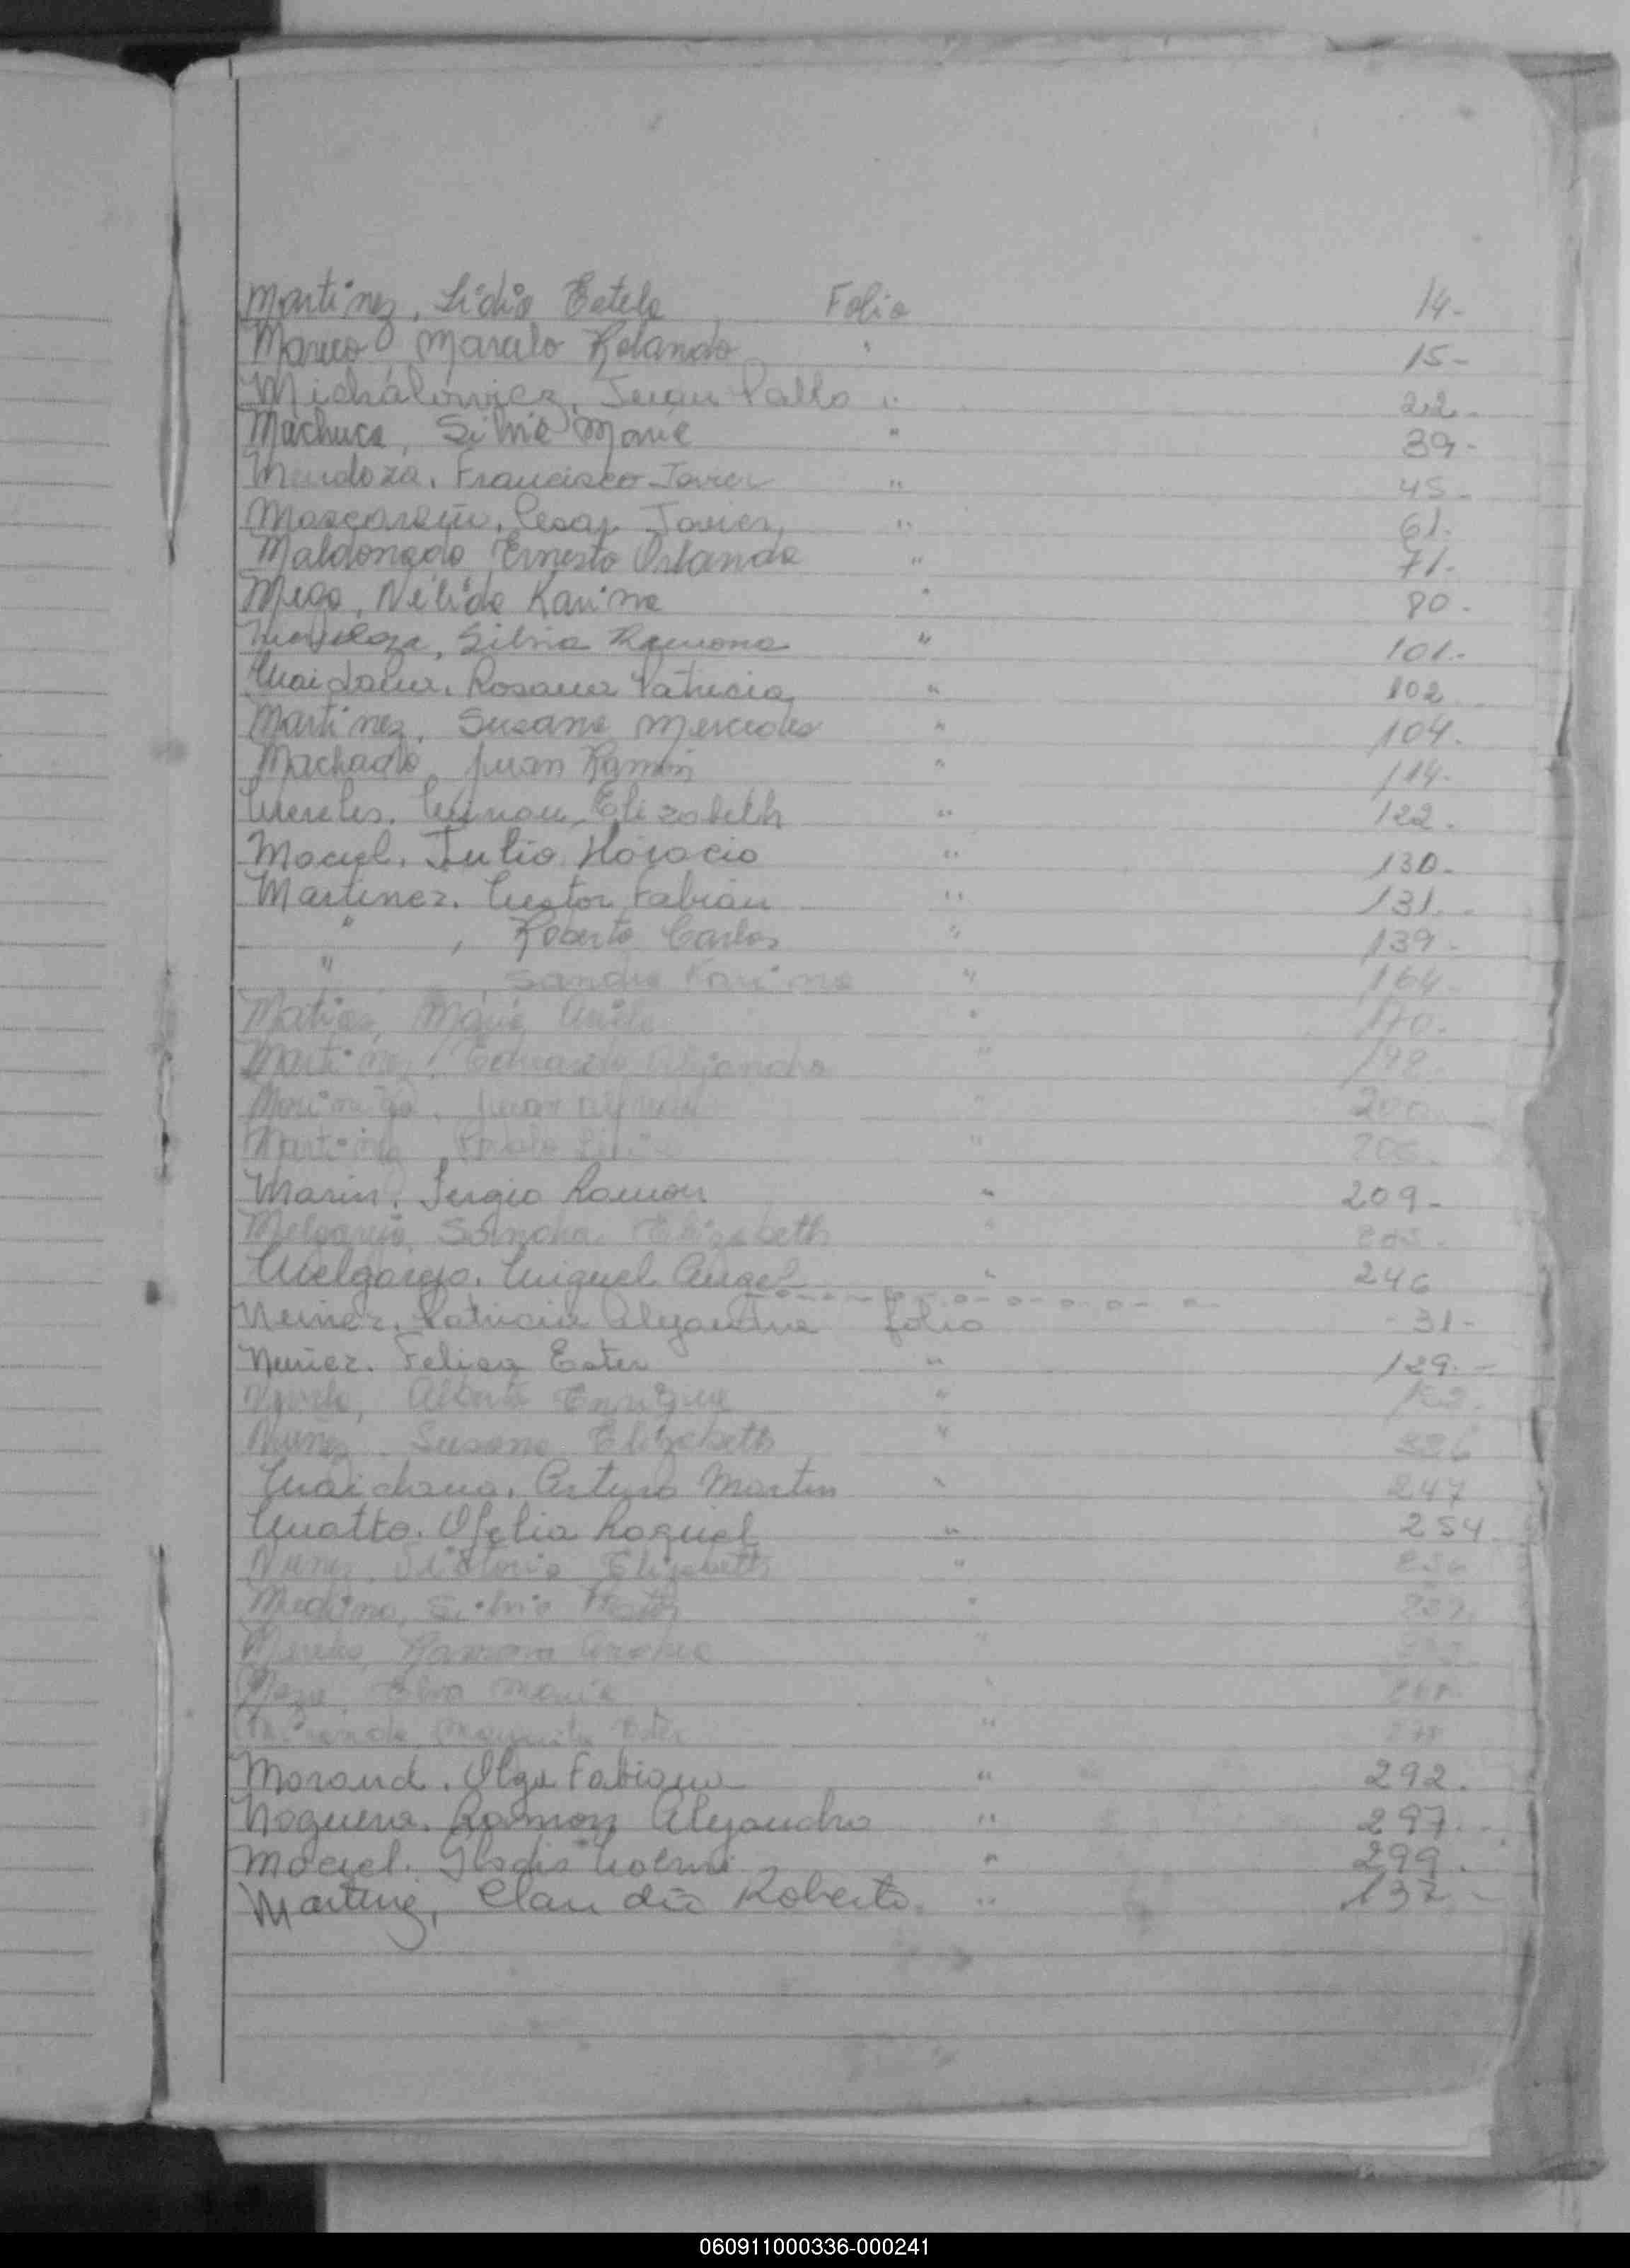 Martinez, Lidia Estela Folio 14-
Mareco, Marcelo Rolando " 15-
Michalowicz, Juan Pablo " 22-
Machuca, Silvia Maria " 39-
Mendoza, Francisco Javier " 45-
Cesar Javier " 61.
Maldonado Ernesto Orlando " 71-
Mega, Nélida Karina " 80-
Mendoza, Silvia Ramona " 101.-
Maidana, Rosana Patricia " 102
Martinez, Susana Mercedes " 104.
Machado, Juan Ramón " 114-
Mereles, Miriam Elizabeth " 122.
Maciel, Julio Horacio " 130-
Martinez, Nestor Fabián " 131.-
" , Roberto Carlos " 139-
" , Sandra Karina " 164-
Matias, Maria " 170.
Martinez, Eduardo Alejandro " 198.
Juan " 200
Martinez "
Marin, Sergio Ramon " 209-
Melgarejo, Sandra Elizabeth "
Melgarejo, Miguel Angel " 246
Nuñez, Patricia Alejandra folio -31-
Nuñez, Felisa Ester " 129.-
Alberto Enrique "
Nunez, Susana Elizabeth "
Maidana, Arturo Martin " 247
Matto, Ofelia Raquel " 254
Nunez, Elizabeth "
Medina, Silvia "
Ramona "
Elva Maria "
Miranda, Margarita Ester "
Morand, Olga Fabiana " 292.
Noguera, Ramon Alejandro " 297.-
Maciel, Gladis Noemi " 299.
Martinez, Claudio Roberto " 137-
060911000336-000241